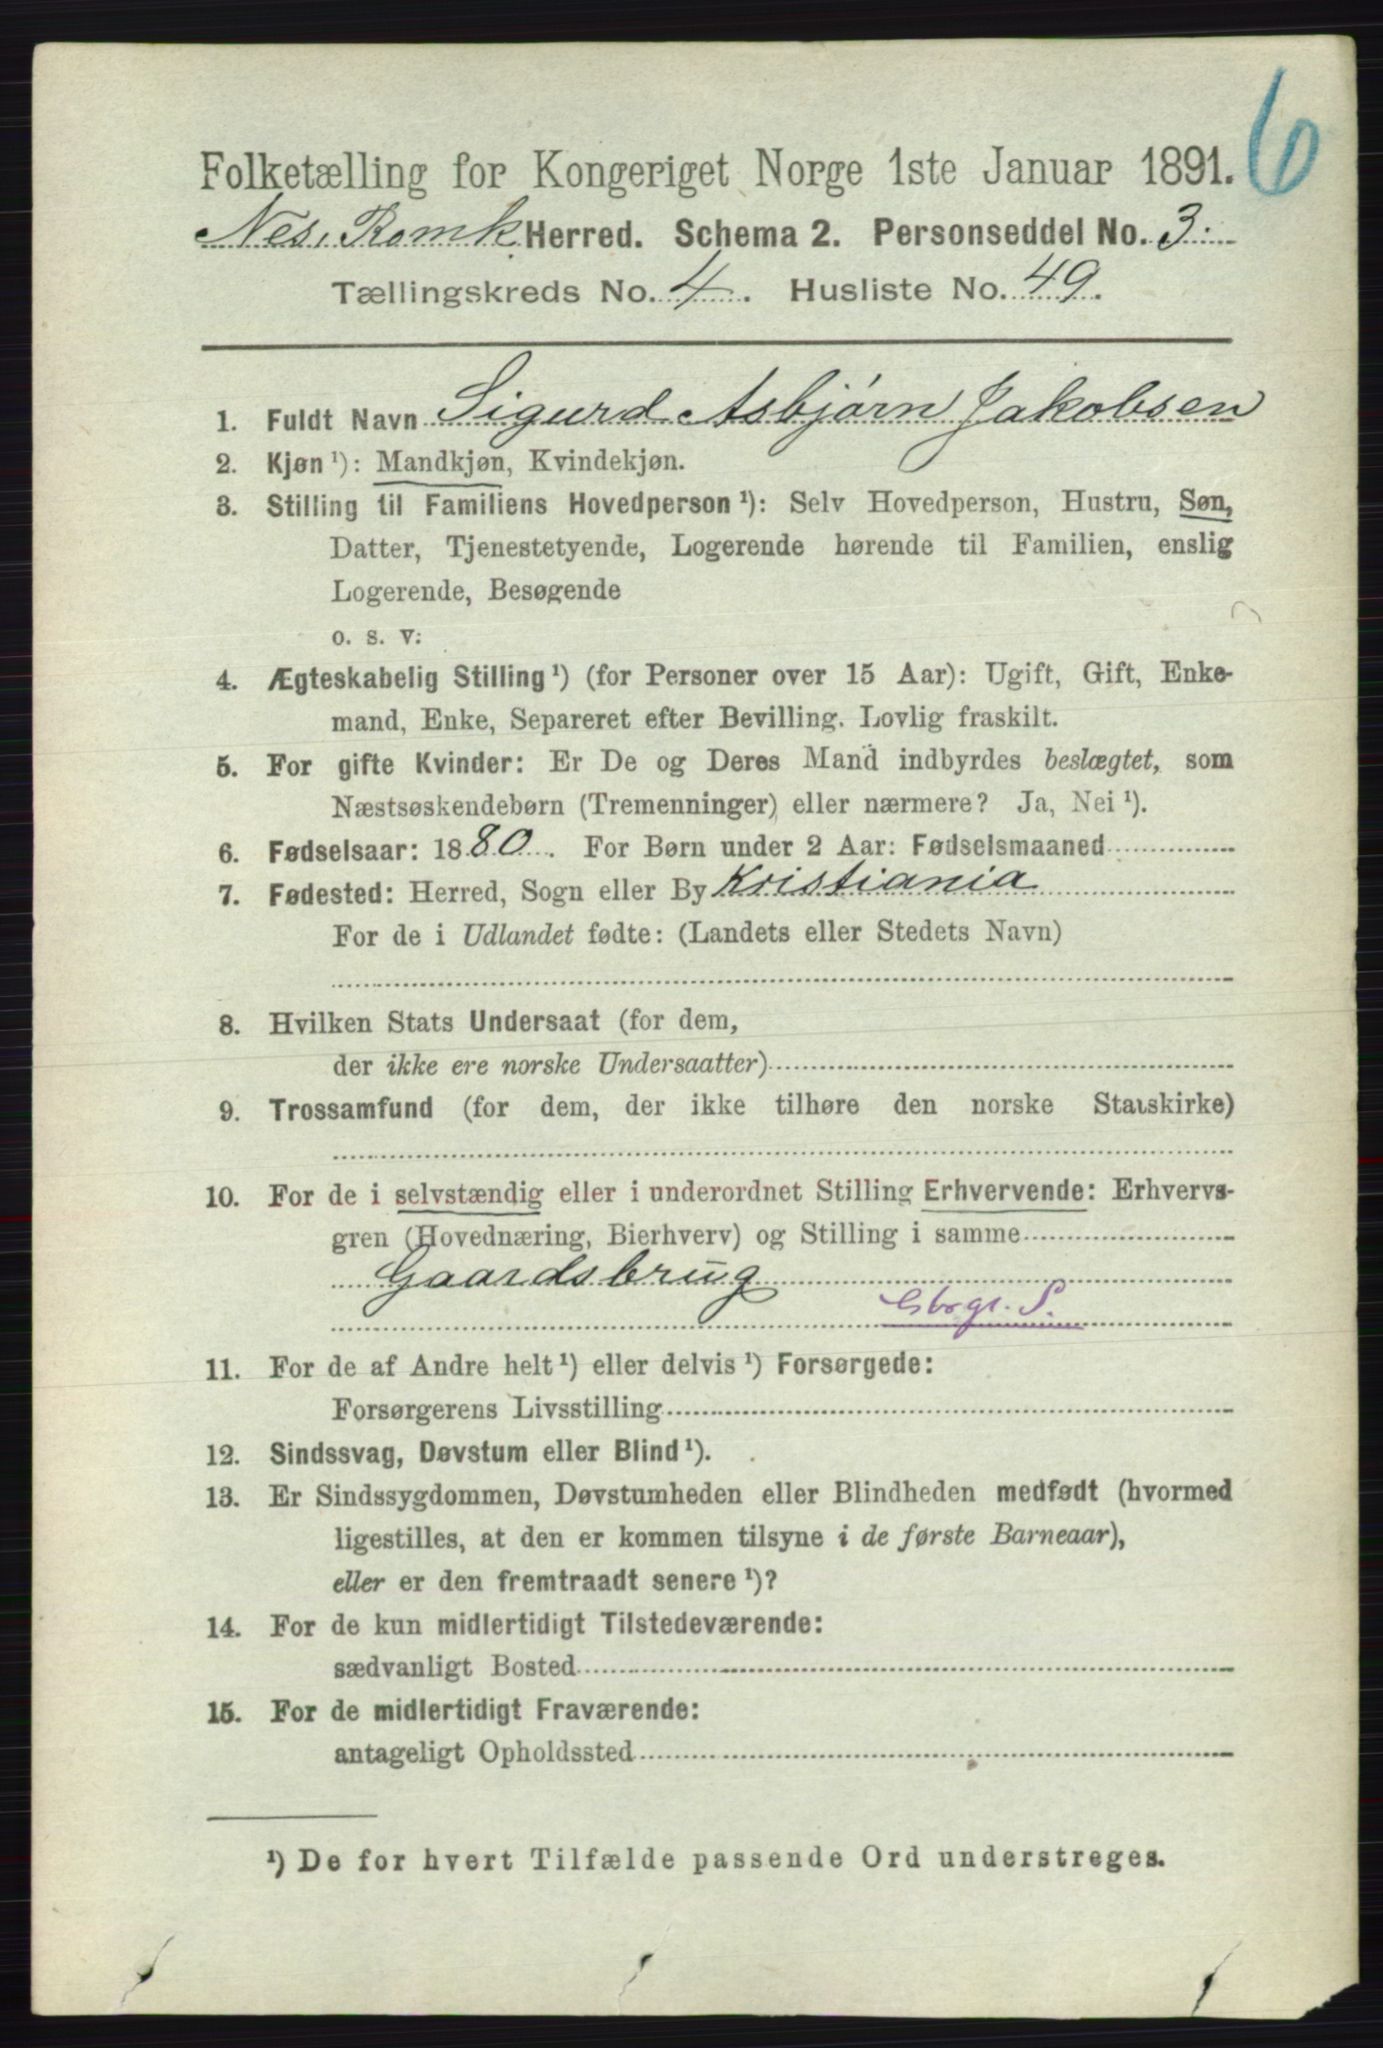 6
Folketælling for Kongeriget Norge 1ste Januar 1891.
Nes, Romk Herred. Schema 2. Personseddel No. 3.
Tællingskreds No. 4. Husliste No. 49.
1. Fuldt Navn Sigurd Asbjørn Jakobsen
2. Kjøn ¹): Mandkjøn, Kvindekjøn.
3. Stilling til Familiens Hovedperson ¹): Selv Hovedperson, Hustru, Søn,
Datter, Tjenestetyende, Logerende hørende til Familien, enslig
Logerende, Besøgende
o. s. v:
4. Ægteskabelig Stilling ¹) (for Personer over 15 Aar): Ugift, Gift, Enke-
mand, Enke, Separeret efter Bevilling. Lovlig fraskilt.
5. For gifte Kvinder: Er De og Deres Mand indbyrdes beslægtet, som
Næstsøskendebørn (Tremenninger) eller nærmere? Ja, Nei ¹).
6. Fødselsaar: 1880. For Børn under 2 Aar: Fødselsmaaned
7. Fødested: Herred, Sogn eller By Kristiania
For de i Udlandet fødte: (Landets eller Stedets Navn)
8. Hvilken Stats Undersaat (for dem,
der ikke ere norske Undersaatter)
9. Trossamfund (for dem, der ikke tilhøre den norske Statskirke)
10. For de i selvstændig eller i underordnet Stilling Erhvervende: Erhvervs-
gren (Hovednæring, Bierhverv) og Stilling i samme
Gaardsbrug
Gbrgr. S.
11. For de af Andre helt ¹) eller delvis ¹) Forsørgede:
Forsørgerens Livsstilling
12. Sindssvag, Døvstum eller Blind ¹).
13. Er Sindssygdommen, Døvstumheden eller Blindheden medfødt (hvormed
ligestilles, at den er kommen tilsyne i de første Barneaar),
eller er den fremtraadt senere ¹)?
14. For de kun midlertidigt Tilstedeværende:
sædvanligt Bosted
15. For de midlertidigt Fraværende:
antageligt Opholdssted
¹) De for hvert Tilfælde passende Ord understreges.